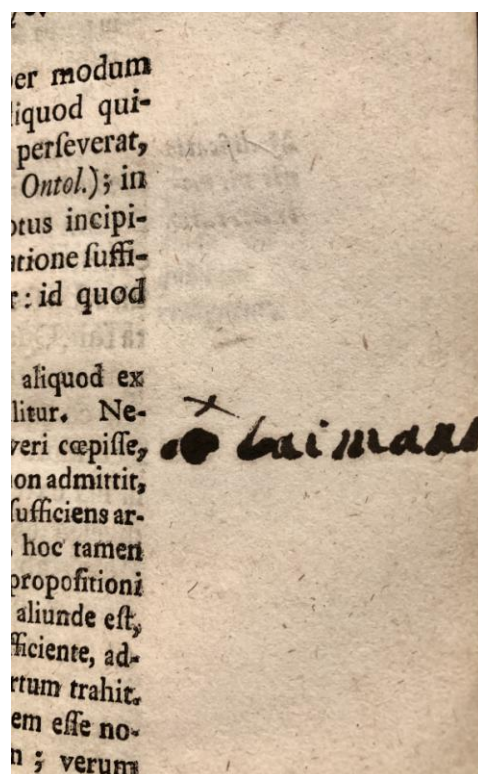 per modum
liquod qui-
perſeverat,
Ontol.); in
otus incipi-
atione ſuffi-
r: id quod
aliquod ex
litur. Ne-
veri cœpiſſe,
non admittit,
ſufficiens ar-
hoc tamen
propoſitioni
aliunde eſt,
fficiente, ad-
rtum trahit.
em eſſe no-
n ; verum